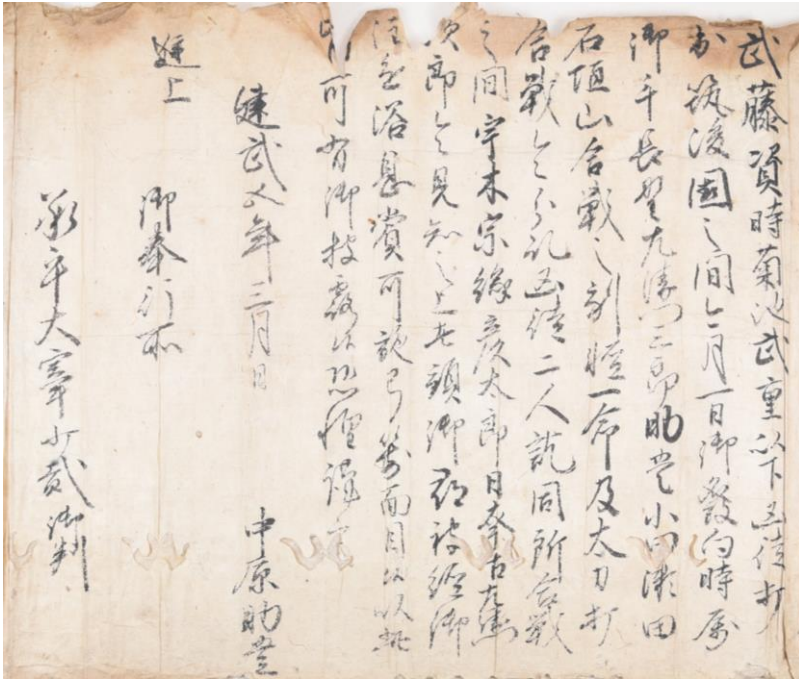 武藤資時菊池武重以下凶徒打
出筑後国之間今月一日御發向時属
御手長野左衛門三郎助豊小田瀬田
石垣山合戰之刻軽一命及太刀打
合戰令分取凶徒二人訖同所合戰
之間宇木宗彦太郎日奉古左衛
次郎令見知之上者頭御被經御
注進浴恩賞可施弓箭面目候以此
旨可有御披露候恐惶謹言
建武四年三月日 中原助豊
進上 御奉行所
承平大宰少貳御判